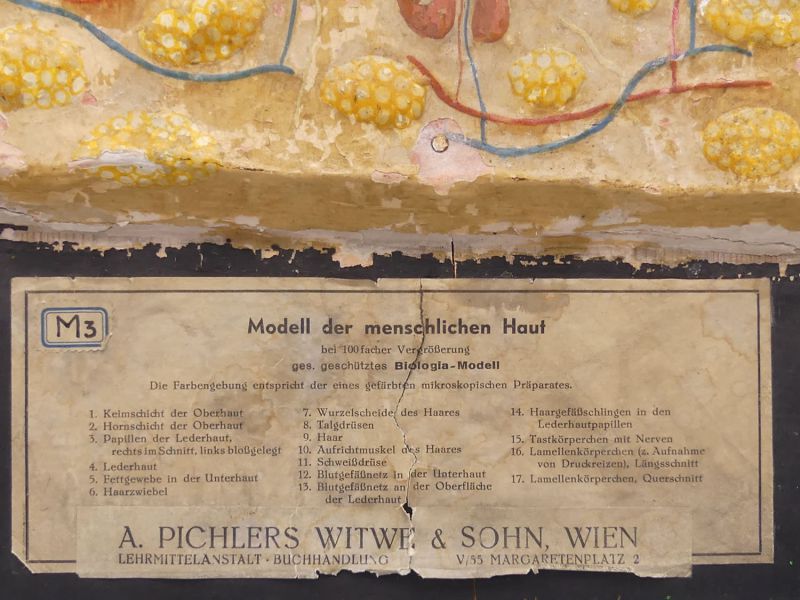 M3
Modell der menschlichen Haut
bei 100facher Vergrößerung
ges. geschütztes Biologia-Modell
Die Farbengebung entspricht der eines gefärbten mikroskopischen Präparates.
1. Keimschicht der Oberhaut
2. Hornschicht der Oberhaut
3. Papillen der Lederhaut,
rechts im Schnitt, links bloßgelegt
4. Lederhaut
5. Fettgewebe in der Unterhaut
6. Haarzwiebel
7. Wurzelscheide des Haares
8. Talgdrüsen
9. Haar
10. Aufrichtmuskel des Haares
11. Schweißdrüse
12. Blutgefäßnetz in der Unterhaut
13. Blutgefäßnetz an der Oberfläche
der Lederhaut
14. Haargefäßschlingen in den
Lederhautpapillen
15. Tastkörperchen mit Nerven
16. Lamellenkörperchen (z. Aufnahme
von Druckreizen), Längsschnitt
17. Lamellenkörperchen, Querschnitt
A. PICHLERS WITWE & SOHN, WIEN
LEHRMITTELANSTALT · BUCHHANDLUNG V/55 MARGARETENPLATZ 2